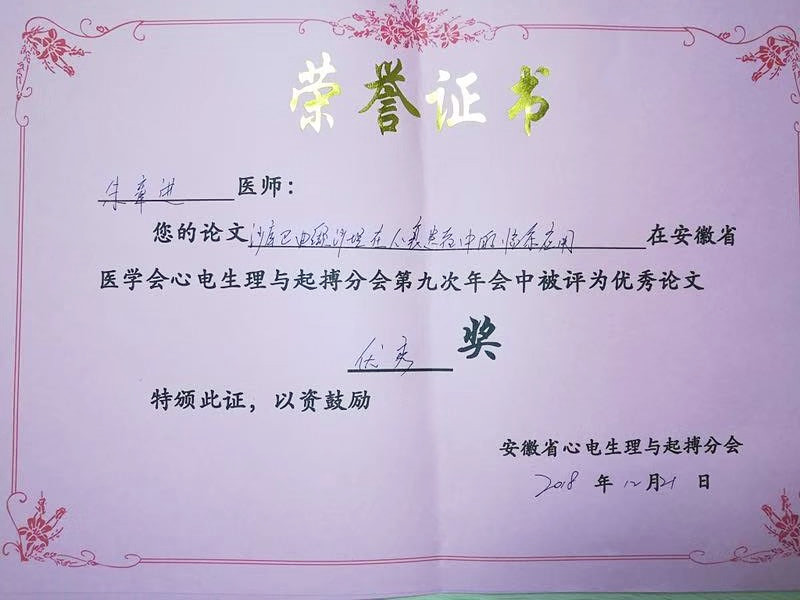 荣誉证书
朱章进 医师：
您的论文沙库巴曲缬沙坦在心衰患者中的临床应用在安徽省
医学会心电生理与起搏分会第九次年会中被评为优秀论文
优秀奖
特颁此证，以资鼓励
安徽省心电生理与起搏分会
2018年12月21日